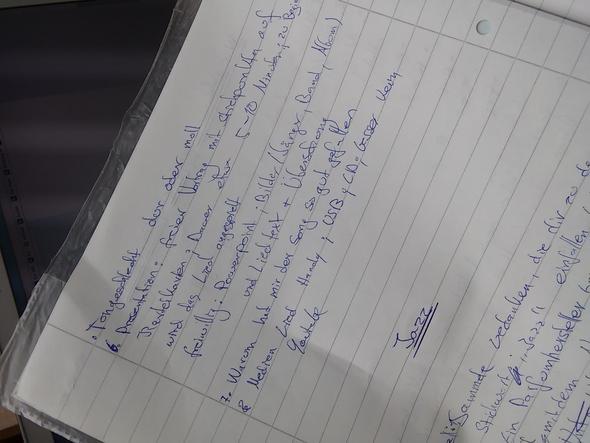 · Tongeschlecht dur oder moll
6. Präsentation: freier Vortrag mit Stichpunkten auf
Karteikarten; Dauer etwa 5-10 Minuten; zu Beginn
wird das Lied angespielt
freiwillig: Powerpoint; Bilder (Sänger, Band, Album)
und Liedtext + Übersetzung
7. Warum hat mir der Song so gut gefallen
8. Medien Lied Handy; USB; CD;
Jazz
Sammle Gedanken, die dir zu de
Stichwort "Jazz" einfallen
Ein Parfümhersteller
mit dem